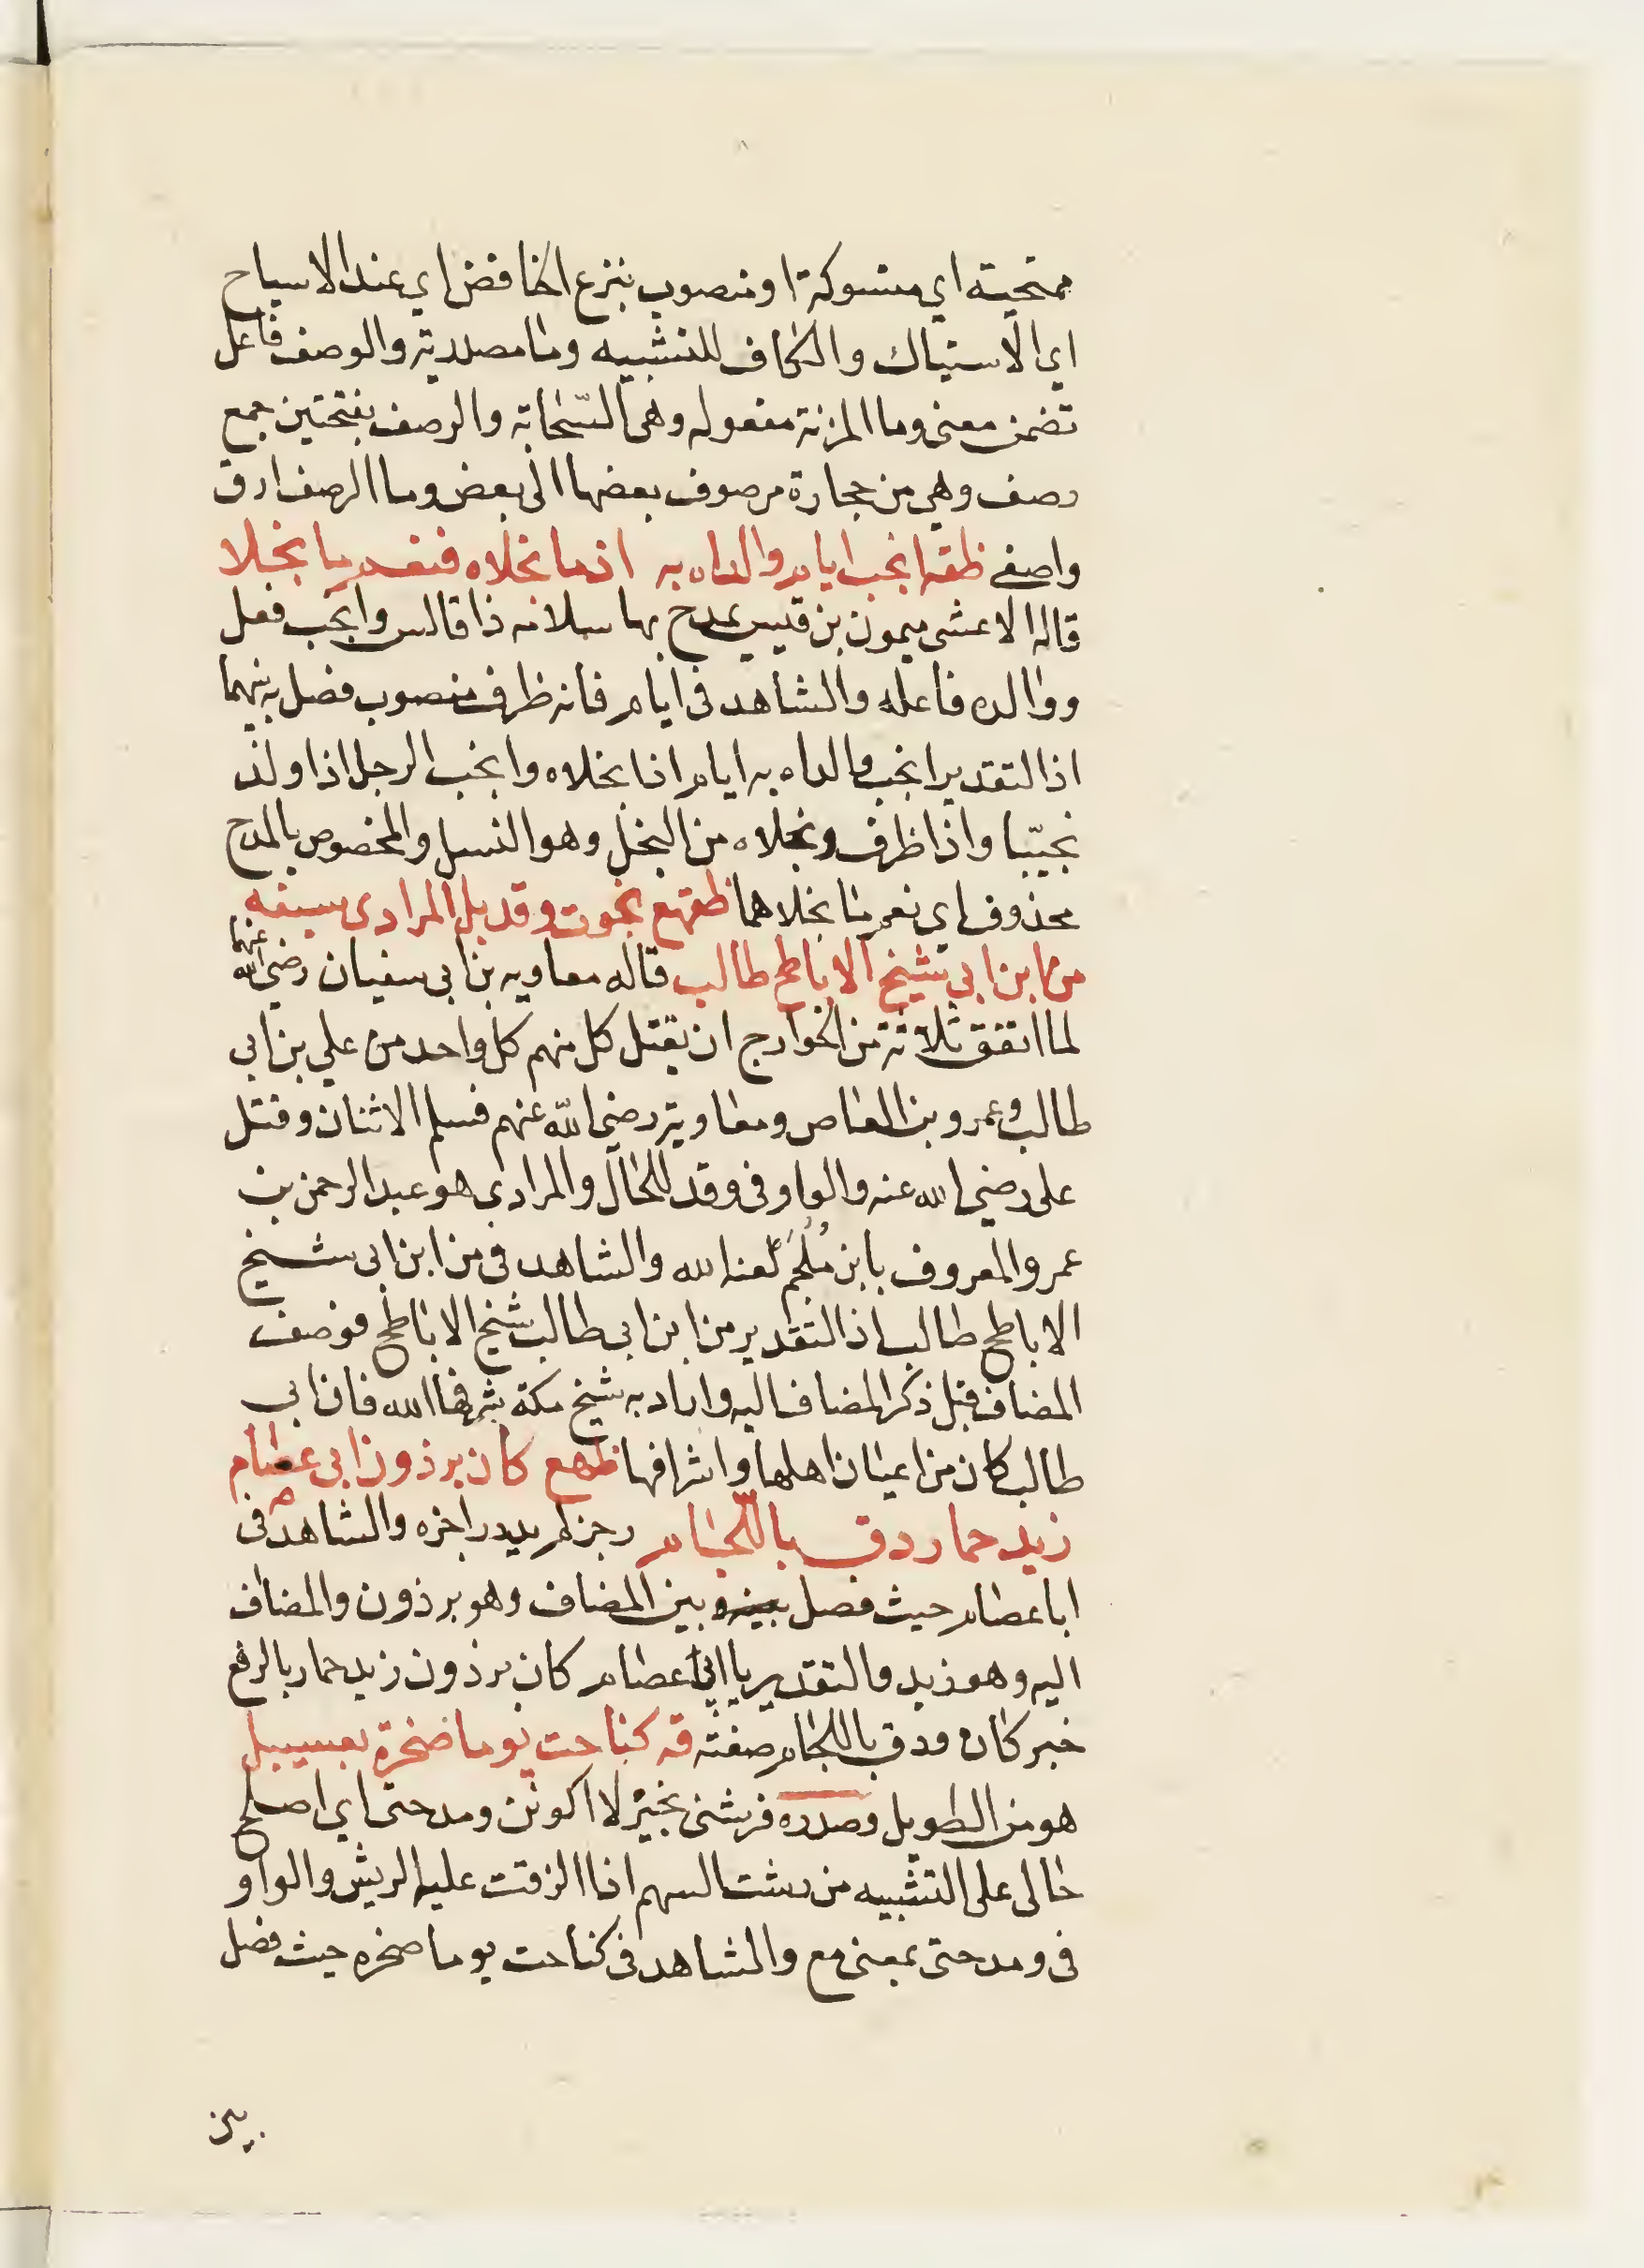 ممتحية اي مسوكة او منصوب بنزع الخافض اي عند الاسياح
اي الاستياك والكاف للتشبيه وما مصدرية والوصف فاعل
تضمن معنى وما المزنة مفعوله وهي السّحابة والرصف بفتحتين جمع
رصف وهي من حجارة مرصوف بعضها الى بعض وما الرصف ارق
واصفى ظقه انجب ايام والداه به اذ ما نجلاه فنعم ما نجلا
قاله الاعشى ميمون بن قيس يمدح بها سلامه ذا قالس وانجب فعل
ووالده فاعله والشاهد في ايام فانه ظرف منصوب فصل به بينهما
اذ التقدير انجب والداه به ايام اذا نجلاه وانجب الرجل اذا ولد
نجيبّا واذا ظرف ونجلاه من النجل وهو النسل والمخصوص بالمدح
محذوف اي نعم ما نجلا هما ظقهع نجوت وقد بل المرادي سيفه
من ابن ابي شيخ الاباطح طالب قاله معاويه بن ابي سفيان رضي الله عنهما
لما اتفق ثلاثة من الخوارج ان يقتل كل منهم كل واحد من علي بن ابي
طالب وعمرو بن العاص ومعاوية رضي الله عنهم فسلم الاثنان وقتل
على رضي الله عنه والواو في وقد للحال والمرادي هو عبد الرحمن بن
عمرو المعروف بابن مُلْجَم لعنه الله والشاهد في من ابن ابي شيخ
الاباطح طالب اذ التقدير من ابن ابي طالب شيخ الاباطح فوصف
المضاف قبل ذكر المضاف اليه واراد به شيخ مكة شرفها الله فان ابي
طالب كان من اعيان اهلها واشرافها ظهع كان برذون ابي عصام
زيد حمار دق باللّجام رجز لم يدر راجزه والشاهد في
ابا عصام حيث فصل بينه و بين المضاف وهو برذون والمضاف
اليه وهو زيد والتقدير يا ابي عصام كان برذون زيد حمار بالرفع
خبر كان ودق باللجام صفته قه كناحت يوما صخرة بعسيل
هو من الطويل وصدره فرشني بخير لا اكونن ومدحتى اي اصلح
حالى على التشبيه من رشت السهم اذا الزقت عليه الريش والواو
في ومدحتى بمعنى مع والشاهد في كناحت يوما صخره حيث فصل
بين